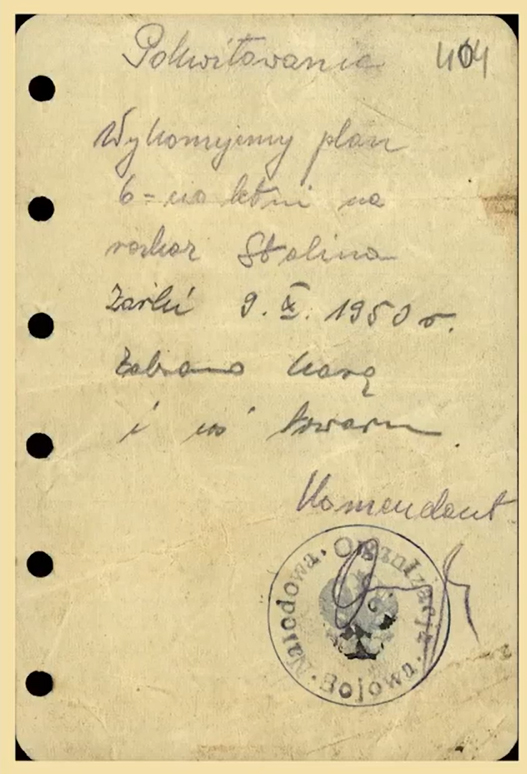 Pokwitowanie 404
Wykonujemy plan
6=cio letni na
rozkaz Stalina
9. X. 1950 r.
Zabrano kasę
i coś towaru
Komendant
Narodowa Organizacja Bojowa